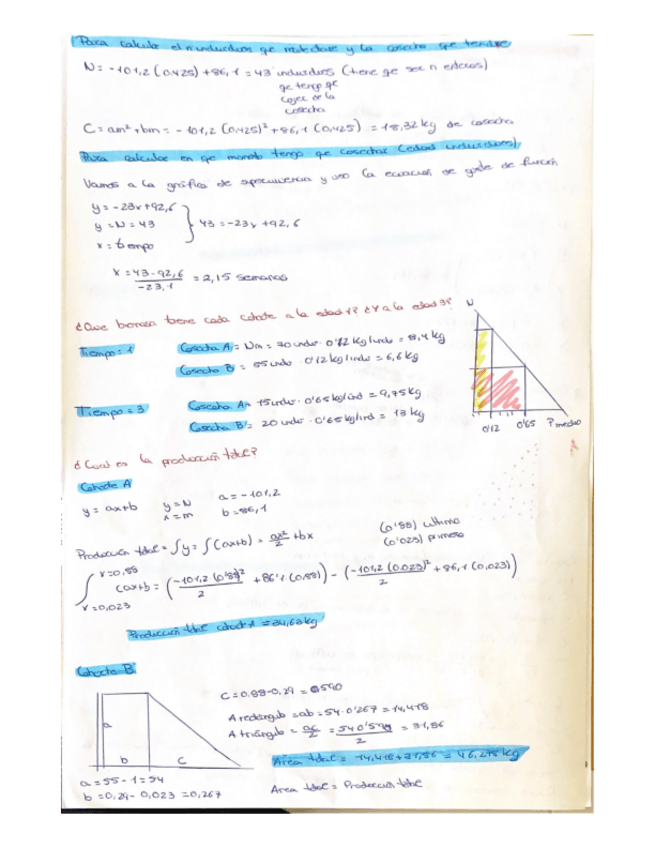 Para calcular el n individuos qe molestare y la cosecha que tendre
N = -101,2 (0,425) + 86,1 = 43 individuos (tiene qe ser n enteros)
qe tengo qe
coger de la
cosecha
C = am² + bm = -101,2 (0,425)² + 86,1 (0,425) = 18,32 kg de cosecha
Para calcular en qe momento tengo qe cosechar (edad individuos)
Vamos a la gráfica de supervivencia y uso la ecuacion de ajuste de funcion
y = -23x + 92,6
y = N = 43
x = tiempo
43 = -23x + 92,6
x = 43 - 92,6 / -23,1 = 2,15 semanas
¿Que biomasa tiene cada cohorte a la edad 1? ¿Y a la edad 3?
N
Tiempo = 1
Cosecha A = N·m = 70 indv · 0'12 kg/indv = 8,4 kg
Cosecha B = 55 indv · 0'12 kg/indv = 6,6 kg
Tiempo = 3
Cosecha A = 15 indv · 0'65 kg/ind = 9,75 kg
Cosecha B = 20 indv · 0'65 kg/ind = 13 kg
0'12 0'65 P medio
¿Cual es la produccion total?
Cohorte A
y = ax+b
y = N
x = m
a = -101,2
b = 86,1
(0'88) ultimo
(0'023) primero
Produccion total = ∫y = ∫(ax+b) = ax²/2 + bx
∫ x=0,88 x=0,023 (ax+b = (-101,2 (0,88)²/2 + 86'1 (0,88)) - (-101,2 (0,023)²/2 + 86,1 (0,023))
Produccion total cohorte A = 34,63 kg
Cohorte B
a
b c
C = 0,88 - 0,29 = 0,590
A rectangulo = ab = 54 · 0'267 = 14,418
A triángulo = ac/2 = 54·0'590/2 = 31,86
Area total = 14,418 + 31,86 = 46,278 kg
a = 55 - 1 = 54
b = 0,29 - 0,023 = 0,267
Area total = Produccion total